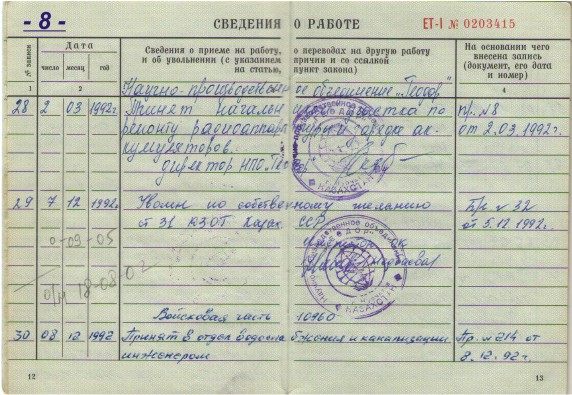 - 8 -
СВЕДЕНИЯ О РАБОТЕ
ЕТ-I № 0203415
№ записи
Дата
число месяц год
Сведения о приеме на работу, о переводах на другую работу
и об увольнении (с указанием причин и со ссылкой
на статью, пункт закона)
На основании чего
внесена запись
(документ, его дата
и номер)
1 2 3 4
Научно-производственное объединение "Теодор"
28 2 03 1992г. Принят начальником участка по Пр. №8
ремонту радиоаппаратуры и зарядке ак- от 2.03.1992г.
кумуляторов.
директор НПО
КАЗАХСТАН
29 7 12 1992г. Уволен по собственному желанию Пр. № 32
ст 31 КЗОТ Казах. ССР от 5.12.1992г.
0-09-05
18-08-02
КАЗАХСТАН
Войсковая часть 10960
30 08 12 1992 Принят в отдел водоснабжения и канализации Пр. № 214 от
инженером 8.12.92г.
12 13